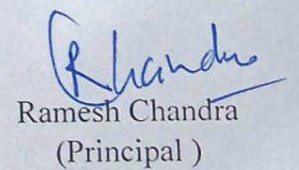 RChandra
Ramesh Chandra
(Principal )